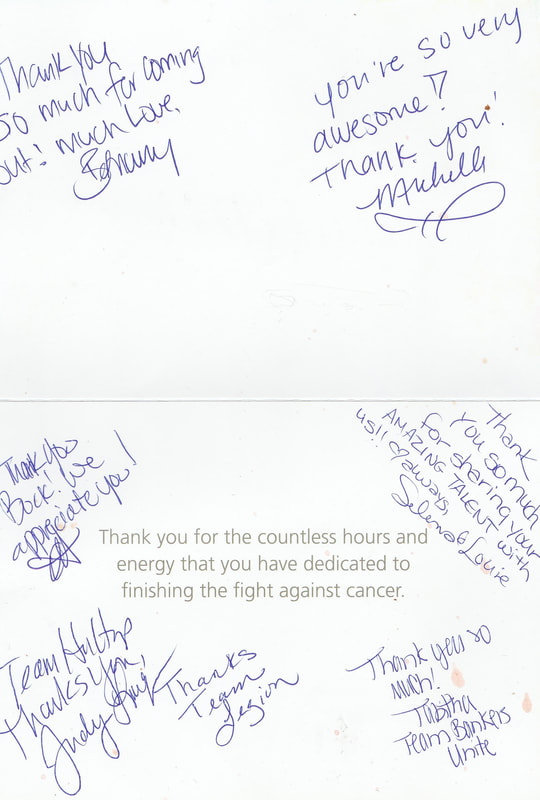 Thank you
So much for coming
out! much Love,
You're so very
awesome!!
Thank you!
Michelle
Thank you
Bock! We
appreciate you!
Thank
you so much
for sharing your
AMAZING TALENT with
us!! ♡ always
Selena & Louie
Thank you for the countless hours and
energy that you have dedicated to
finishing the fight against cancer.
Team Hilltop
Thanks you,
Judy
Thanks
Team
Legion
Thank you so
much!
Tabitha
Team Bankers
Unite